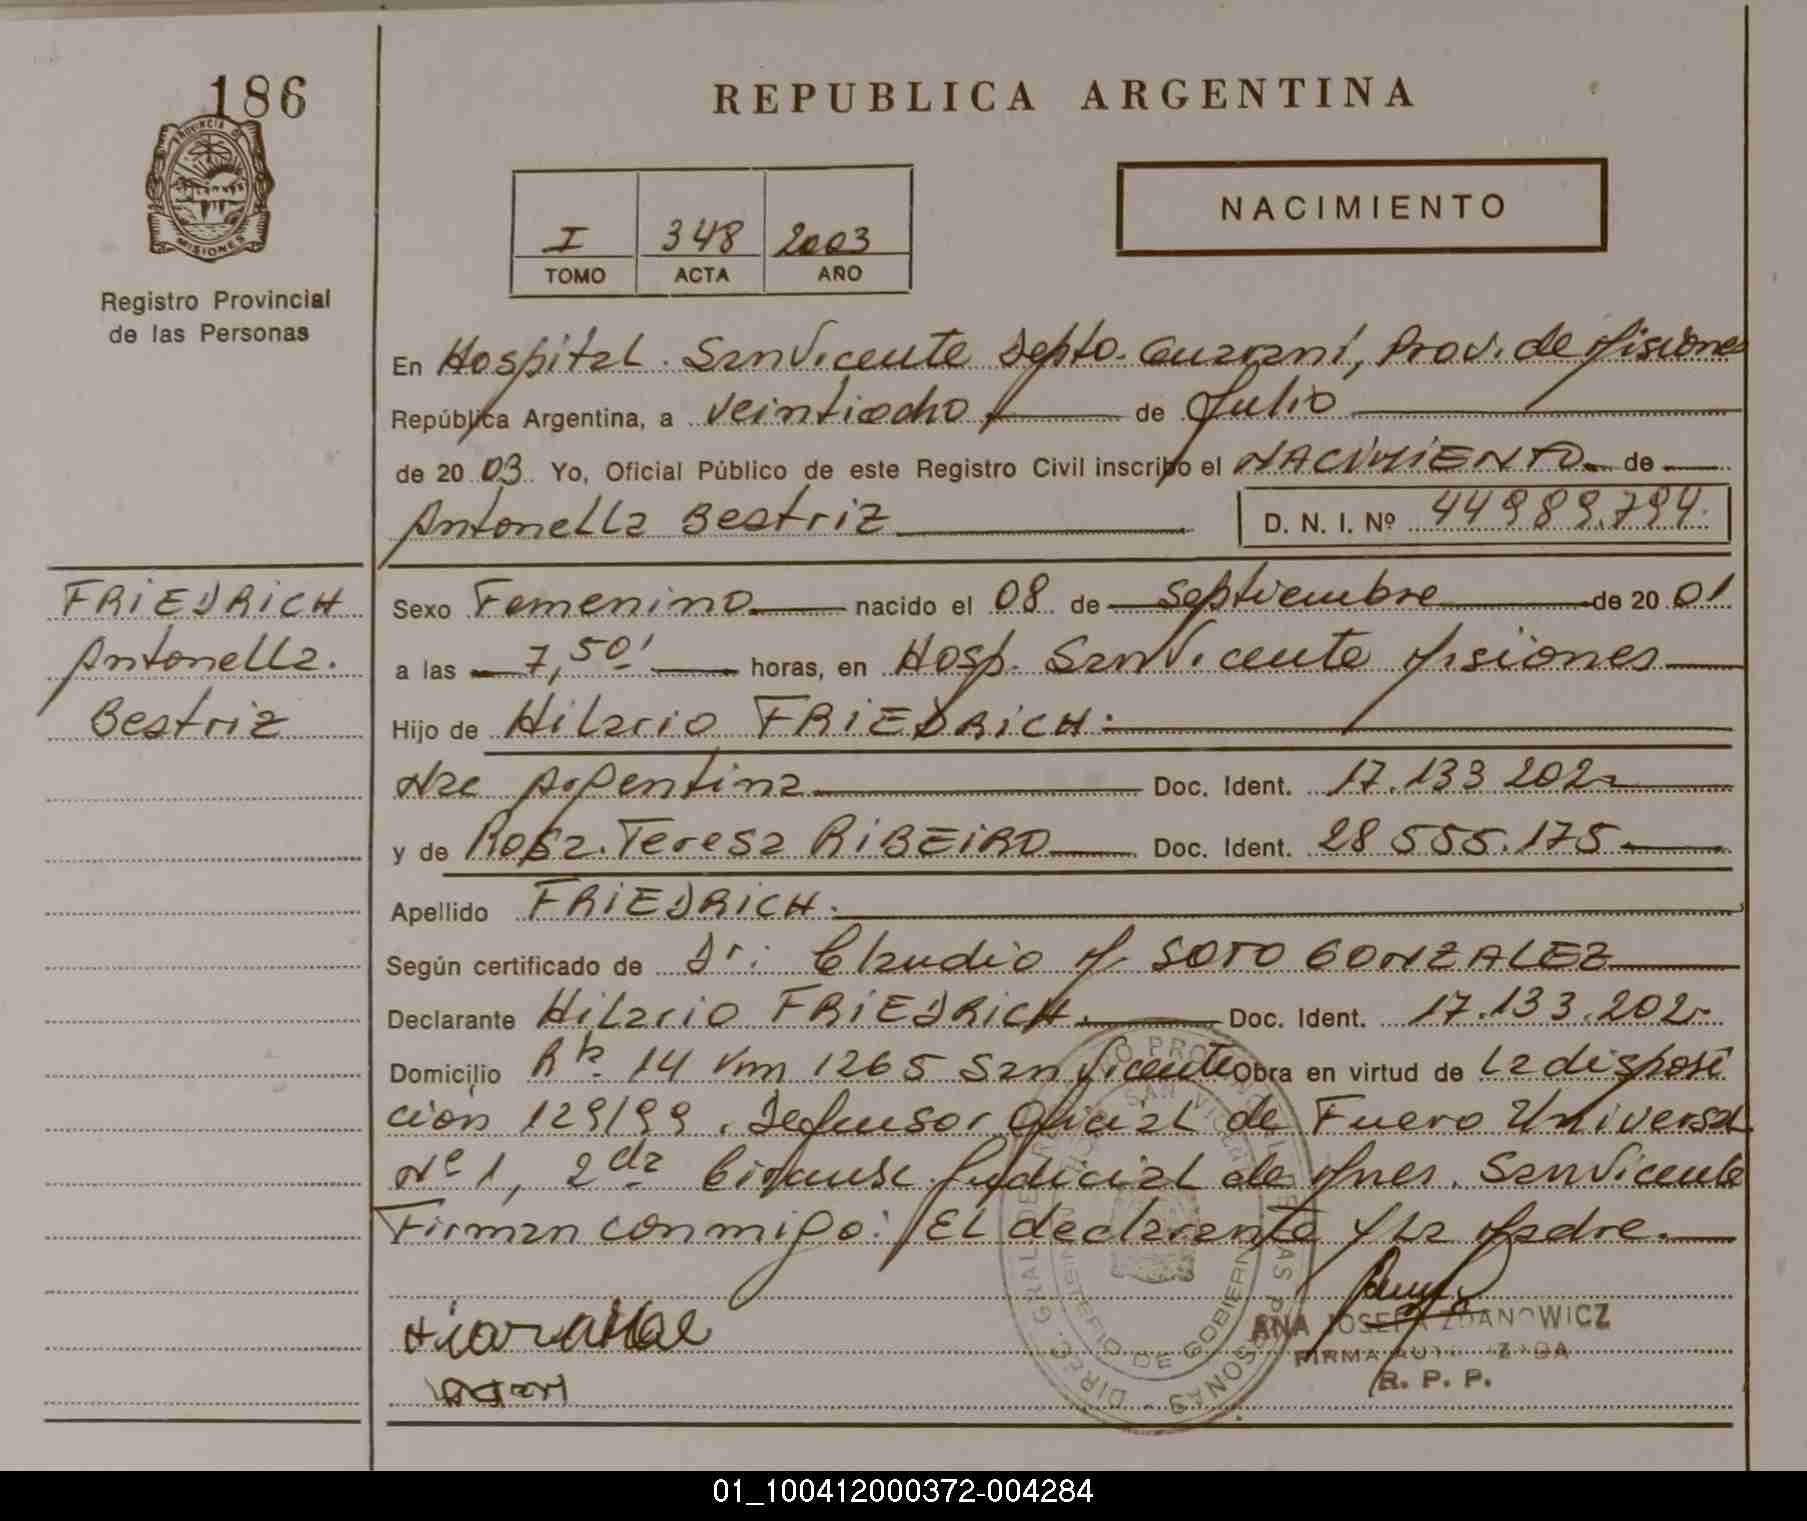 186
PROVINCIA DE
MISIONES
Registro Provincial
de las Personas
REPUBLICA ARGENTINA
I 348 2003
TOMO ACTA AÑO
NACIMIENTO
En Hospital. San Vicente Depto. Guarani, Prov. de Misiones
República Argentina, a veintiocho de Julio
de 20 03. Yo, Oficial Público de este Registro Civil inscribo el NACIMIENTO de
Antonella Beatriz D. N. I. Nº 44989.794.
FRIEDRICH
Antonella.
Beatriz
Sexo Femenino nacido el 08 de Septiembre de 20 01
a las 7,50' horas, en Hosp. San Vicente Misiones
Hijo de Hilario FRIEDRICH.
Nac Argentina Doc. Ident. 17.133 202
y de Rosa. Teresa RIBEIRO Doc. Ident. 28 555.175
Apellido FRIEDRICH.
Según certificado de Dr: Claudio M. SOTO GONZALEZ
Declarante Hilario FRIEDRICH. Doc. Ident. 17.133.202.
Domicilio Rta 14 Km 1265 San Vicente Obra en virtud de La disposi
ción 129/99. Defensor Oficial de Fuero Universal
Nº 1, 2da Circunsc. Judicial de Mnes. San Vicente
Firman conmigo: El declarante y La Madre.
ANA JOSEFA ZDANOWICZ
FIRMA AUTORIZADA
R. P. P.
MINISTERIO DE GOBIERNO
01_100412000372-004284